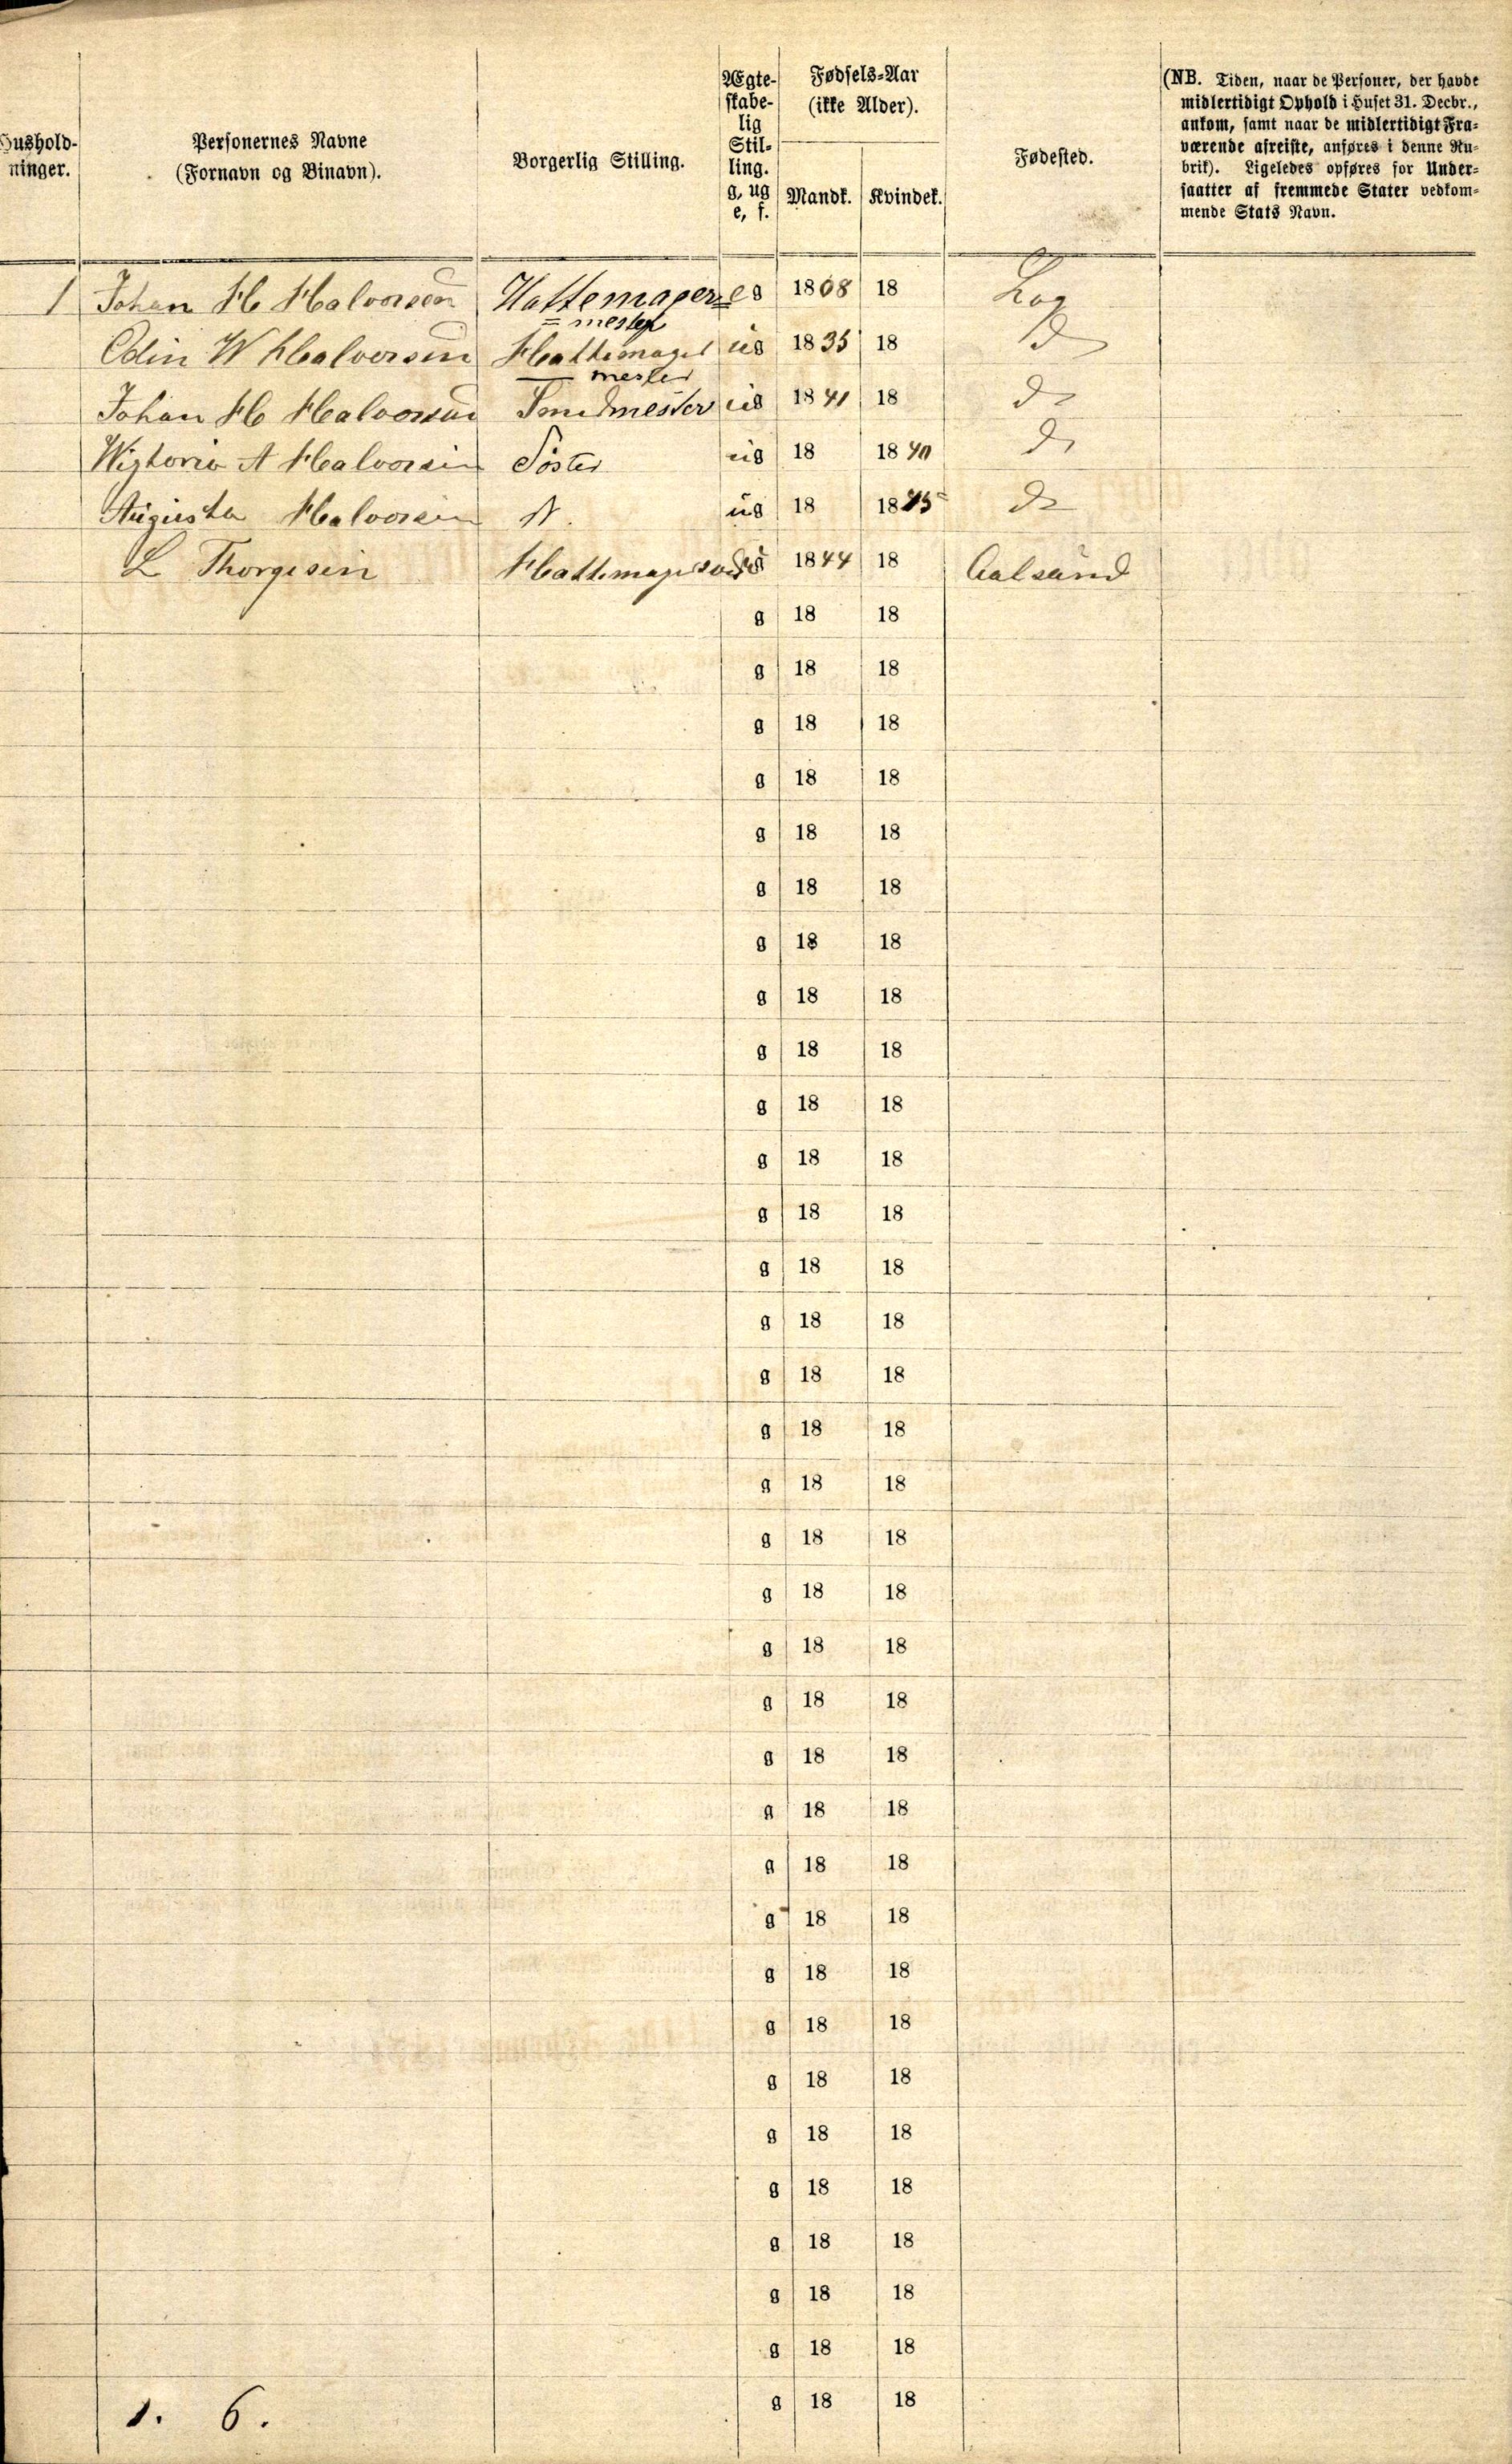 Hushold-
ninger.
Personernes Navne
(Fornavn og Binavn).
Borgerlig Stilling.
Ægte-
skabe-
lig
Stil-
ling.
g, ug
e, f.
Fødsels-Aar
(ikke Alder).
Mandk. Kvindek.
Fødested.
(NB. Tiden, naar de Personer, der havde
midlertidigt Ophold i Huset 31. Decbr.,
ankom, samt naar de midlertidigt Fra-
værende afreiste, anføres i denne Ru-
brik). Ligeledes opføres for Under-
saatter af fremmede Stater vedkom-
mende Stats Navn.
1 Johan H Halvorsen Hattemager= e g 1808 18
= mester
Odin W Halvorsen Hattemager ug 1835 18
mester
Johan H Halvorsen ug 1841 18 do
Wigtoria A Halvorsen Söster ug 18 1840 do
Augusta Halvorsen ug 18 18 do
L Thorgesen ug 1844 18 Aalsund
g 18 18
g 18 18
g 18 18
g 18 18
g 18 18
g 18 18
g 18 18
g 18 18
g 18 18
g 18 18
g 18 18
g 18 18
g 18 18
g 18 18
g 18 18
g 18 18
g 18 18
g 18 18
g 18 18
g 18 18
g 18 18
g 18 18
g 18 18
g 18 18
g 18 18
g 18 18
g 18 18
g 18 18
g 18 18
g 18 18
g 18 18
g 18 18
g 18 18
g 18 18
1. 6.